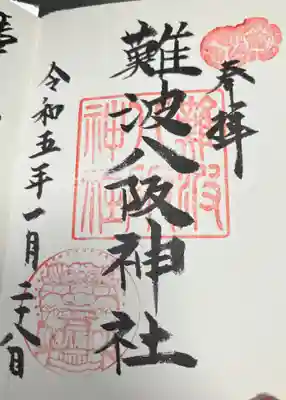 奉拝
難波八阪神社
難波
八阪
神社
令和五年一月二十八日